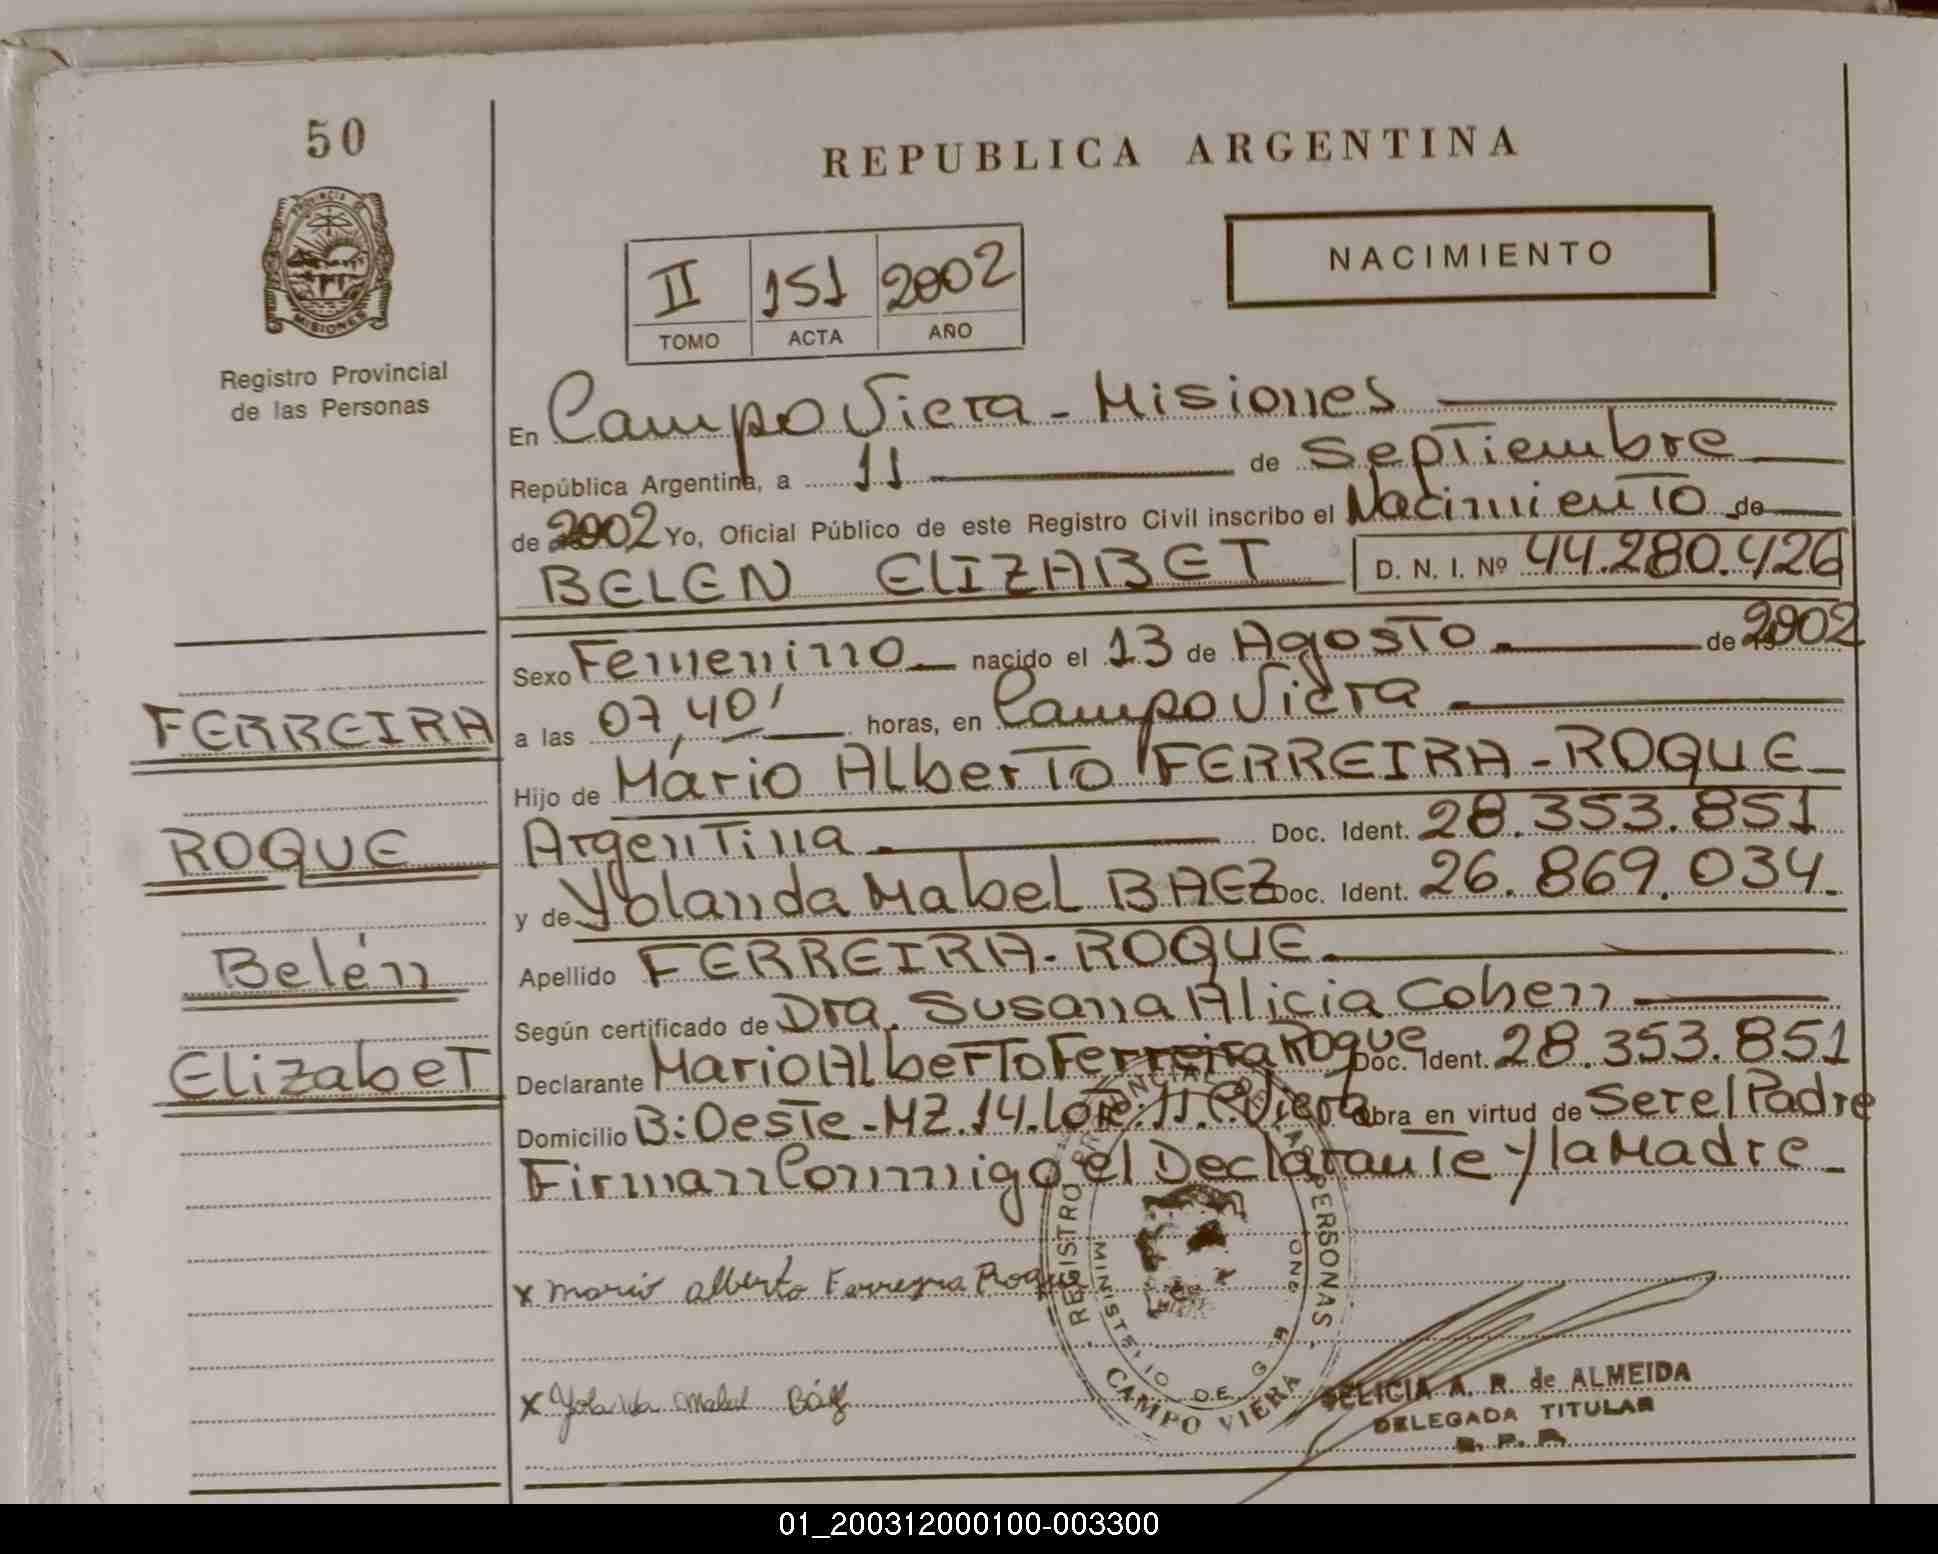 50
REPUBLICA ARGENTINA
PROVINCIA DE
MISIONES
NACIMIENTO
II 151 2002
TOMO ACTA AÑO
Registro Provincial
de las Personas
En Campo Viera - Misiones
República Argentina, a 11 de Septiembre
de 2002 Yo, Oficial Público de este Registro Civil inscribo el Nacimiento de
BELEN ELIZABET D. N. I. Nº 44.280.426
Sexo Femenino nacido el 13 de Agosto de 2002
FERREIRA
a las 07,40' horas, en Campo Viera
Hijo de Mario Alberto FERREIRA-ROQUE
ROQUE
Argentina Doc. Ident. 28.353.851
y de Yolanda Mabel BAEZ Doc. Ident. 26.869.034.
Belén
Apellido FERREIRA-ROQUE
Según certificado de Dra. Susana Alicia Cohen
Elizabet
Declarante Mario Alberto Ferreira Roque Doc. Ident. 28.353.851
Domicilio B: Oeste - MZ. 14. Lote: 11. C. Viera Obra en virtud de Ser el Padre
Firman Conmigo el Declarante y la Madre
REGISTRO PROVINCIAL DE LAS PERSONAS
MINISTERIO DE
CAMPO VIERA
x Mario alberto Ferreyra Roque
x Yolanda Mabel Báez
FELICIA A. R. de ALMEIDA
DELEGADA TITULAR
R. P. P.
01_200312000100-003300